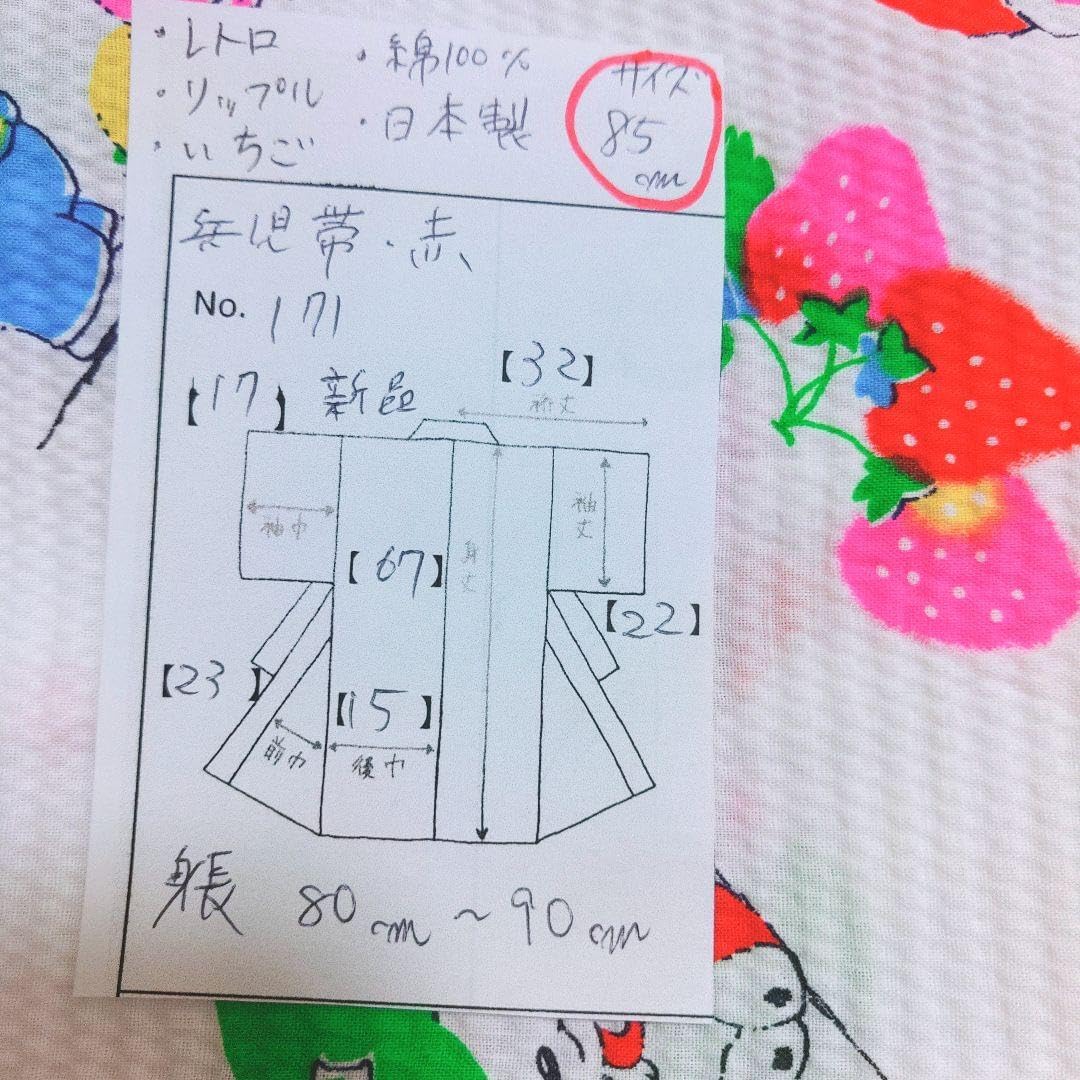 ・レトロ
・リップル
・いちご
・綿100%
・日本製
サイズ
85
cm
兵児帯・赤
No. 171
【17】 新品
【32】
裄丈
袖巾
袖丈
身丈
【67】
【22】
【23】
【15】
前巾
後巾
身長 80cm〜90cm